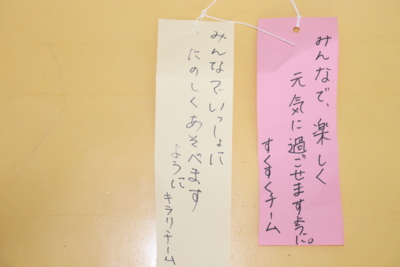 みんなで、楽しく
元気に過ごせますように。
すくすくチーム
みんなでいっしょに
たのしくあそべます
ように
キラリチーム